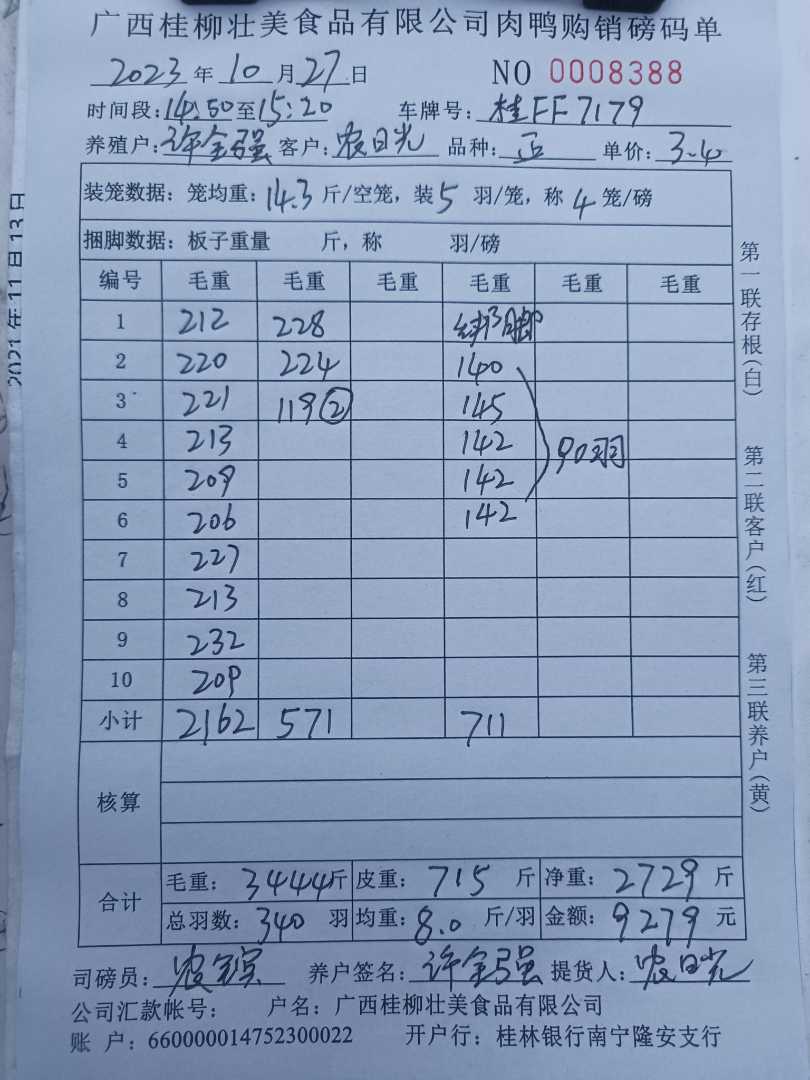 广西桂柳壮美食品有限公司肉鸭购销磅码单
2023年10月27日 NO 0008388
时间段:14:50至15:20 车牌号:桂FF7179
养殖户:许全强 客户:农日光 品种: 单价:3.40
装笼数据:笼均重:14.3斤/空笼,装5羽/笼,称4笼/磅
捆脚数据:板子重量 斤,称 羽/磅
编号 毛重 毛重 毛重 毛重 毛重 毛重
1 212 228 绑脚
2 220 224 140
3 221 119② 145
4 213 142 90羽
5 209 142
6 206 142
7 227
8 213
9 232
10 209
小计 2162 571 711
核算
合计 毛重:3444斤 皮重:715斤 净重:2729斤
总羽数:340羽 均重:8.0斤/羽 金额:9279元
司磅员: 养户签名:许全强 提货人:农日光
公司汇款帐号: 户名:广西桂柳壮美食品有限公司
账 户:660000014752300022 开户行:桂林银行南宁隆安支行
第一联存根(白) 第二联客户(红) 第三联养户(黄)
2021年11日13日